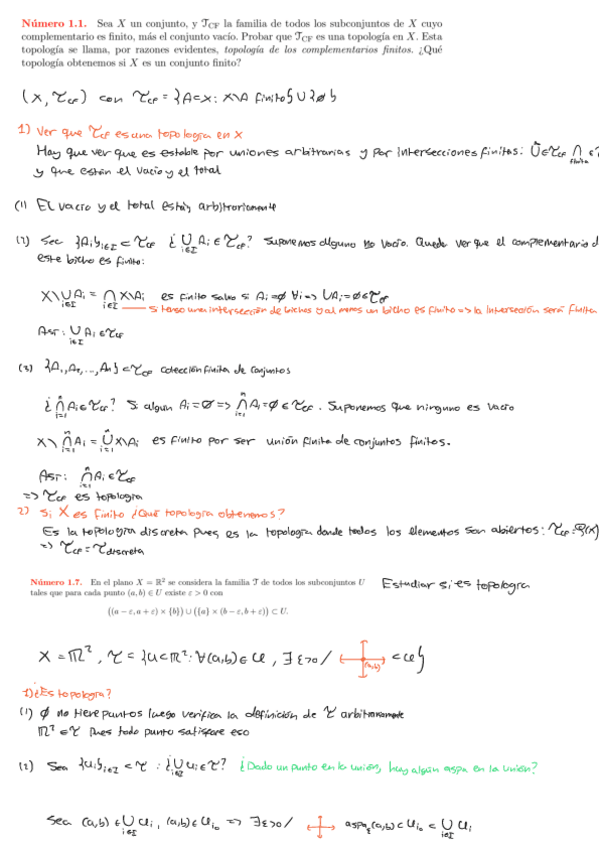 Número 1.1. Sea X un conjunto, y 𝒯_CF la familia de todos los subconjuntos de X cuyo
complementario es finito, más el conjunto vacío. Probar que 𝒯_CF es una topología en X. Esta
topología se llama, por razones evidentes, topología de los complementarios finitos. ¿Qué
topología obtenemos si X es un conjunto finito?
(X, τ_CF) con τ_CF = {A⊂X: X\A finito} ∪ {∅}
1) Ver que τ_CF es una topología en X
Hay que ver que es estable por uniones arbitrarias y por intersecciones finitas: Ũ∈τ_CF ∩ finita
y que están el vacío y el total
(1) El vacío y el total están arbitrariamente
(2) Sea {Ai}i∈I ⊂ τ_CF ¿ ∪i∈I Ai ∈ τ_CF? Suponemos alguno no vacío. Quede ver que el complementario d
este bicho es finito:
X\∪i∈I Ai = ∩i∈I X\Ai es finito salvo si Ai=∅ ∀i => ∪Ai=∅∈τ_CF
Si tengo una intersección de bichos y al menos un bicho es finito => la intersección será finita
Así: ∪i∈I Ai ∈ τ_CF
(3) {A1, A2, ..., An} ⊂ τ_CF colección finita de conjuntos
¿ ∩i=1^n Ai ∈ τ_CF? Si algún Ai = ∅ => ∩i=1^n Ai = ∅ ∈ τ_CF. Suponemos que ninguno es vacío
X\∩i=1^n Ai = ∪i=1^n X\Ai es finito por ser unión finita de conjuntos finitos.
Así: ∩i=1^n Ai ∈ τ_CF
=> τ_CF es topología
2) Si X es finito ¿Qué topología obtenemos?
Es la topología discreta pues es la topología donde todos los elementos son abiertos: τ_CF = P(X)
=> τ_CF = τ_discreta
Número 1.7. En el plano X = ℝ² se considera la familia 𝒯 de todos los subconjuntos U
tales que para cada punto (a, b) ∈ U existe ε > 0 con
Estudiar si es topología
((a − ε, a + ε) × {b}) ∪ ({a} × (b − ε, b + ε)) ⊂ U.
X = ℝ², τ = {U⊂ℝ²: ∀(a,b)∈U, ∃ε>0 / (a,b) ⊂ U}
1) ¿Es topología?
(1) ∅ no tiene puntos luego verifica la definición de τ arbitrariamente
ℝ² ∈ τ pues todo punto satisface eso
(2) Sea {Ui}i∈I ⊂ τ : ¿ ∪i∈I Ui ∈ τ? ¿Dado un punto en la unión, hay algún aspa en la unión?
Sea (a,b) ∈ ∪i∈I Ui, (a,b) ∈ Ui₀ => ∃ε>0 / aspa_ε(a,b) ⊂ Ui₀ ⊂ ∪i∈I Ui